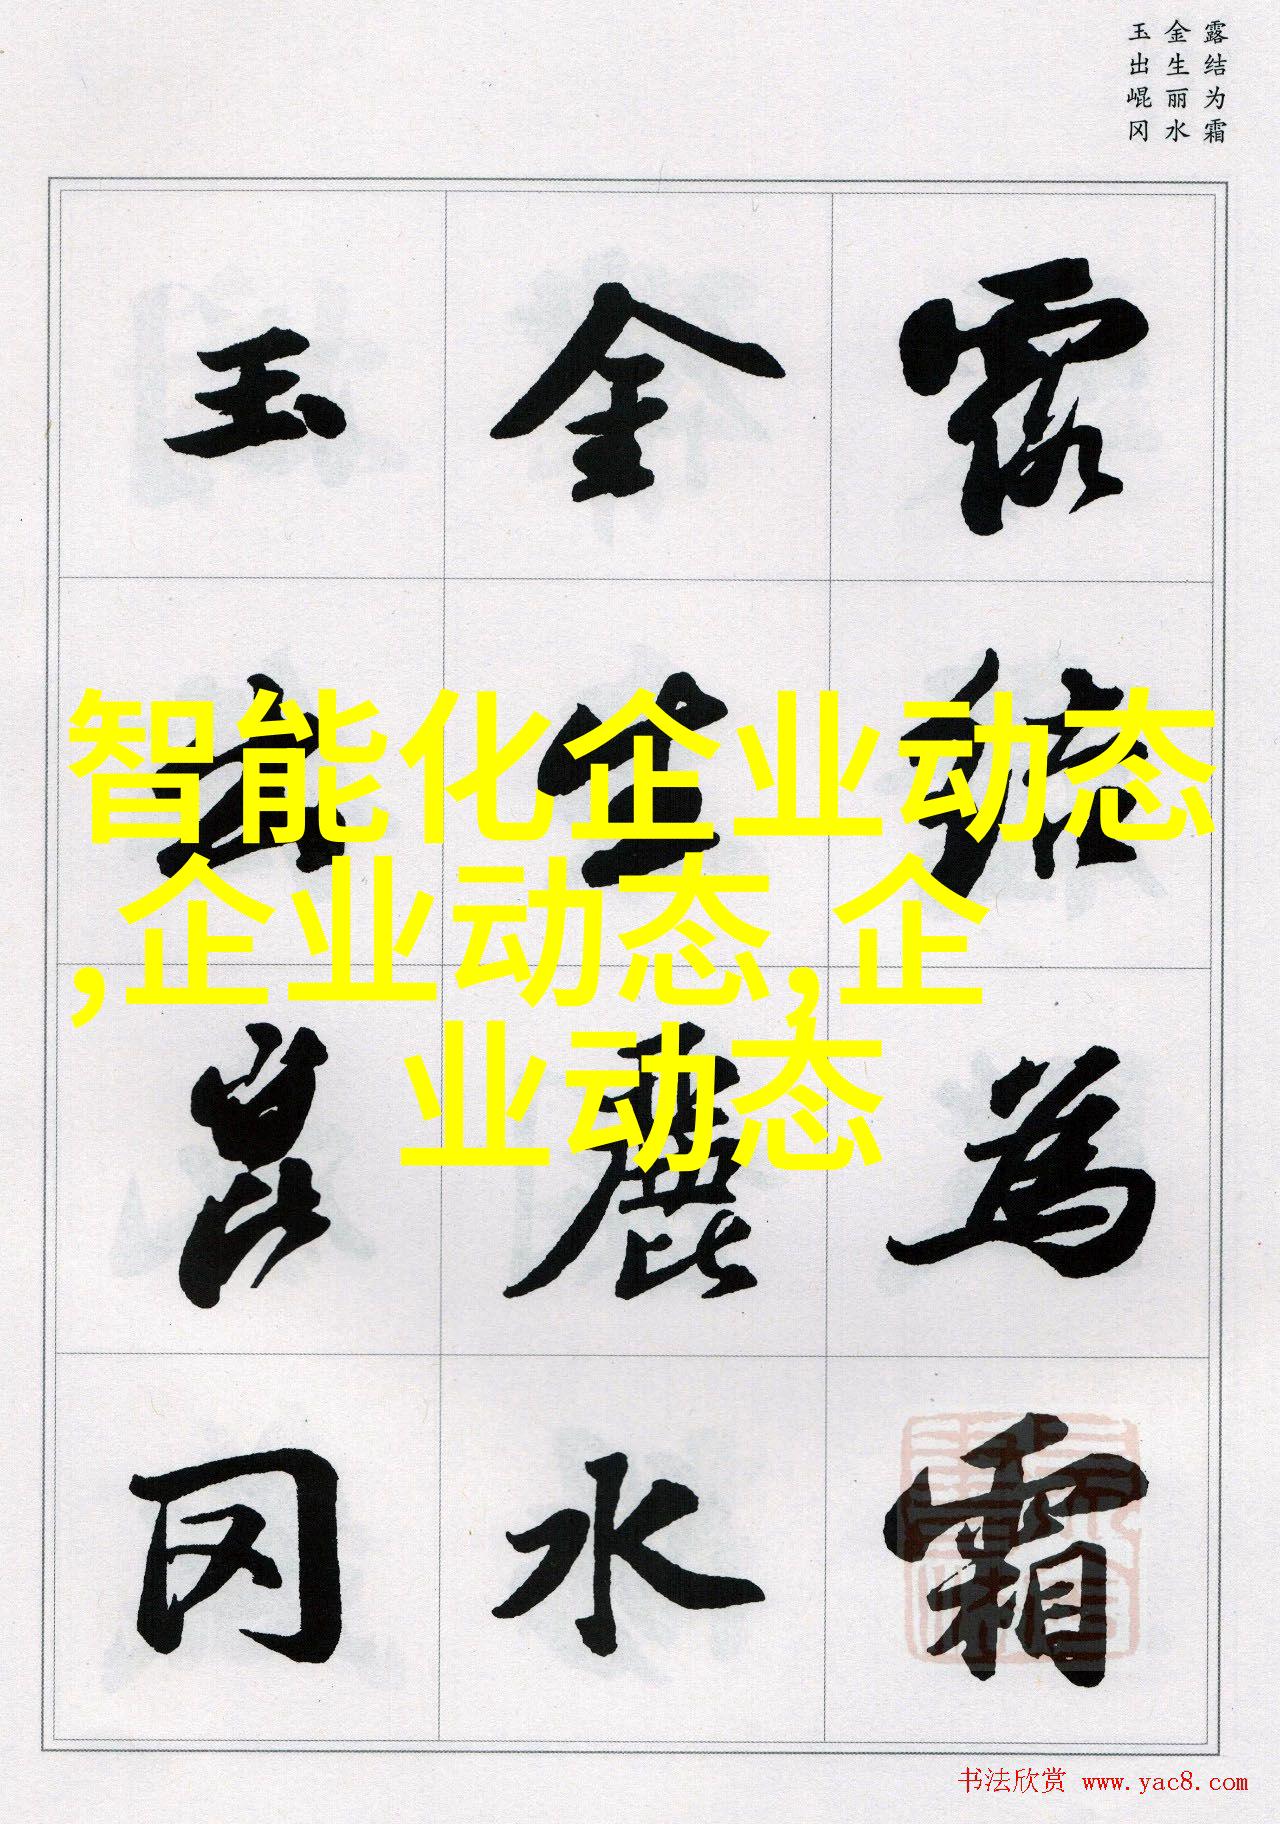 露结为霜
金生丽水
玉出崐冈
露結為霜
金生麗水
玉出崑冈
智能化企业动态
,企业动态,企
业动态
书法欣赏 www.yac8.com